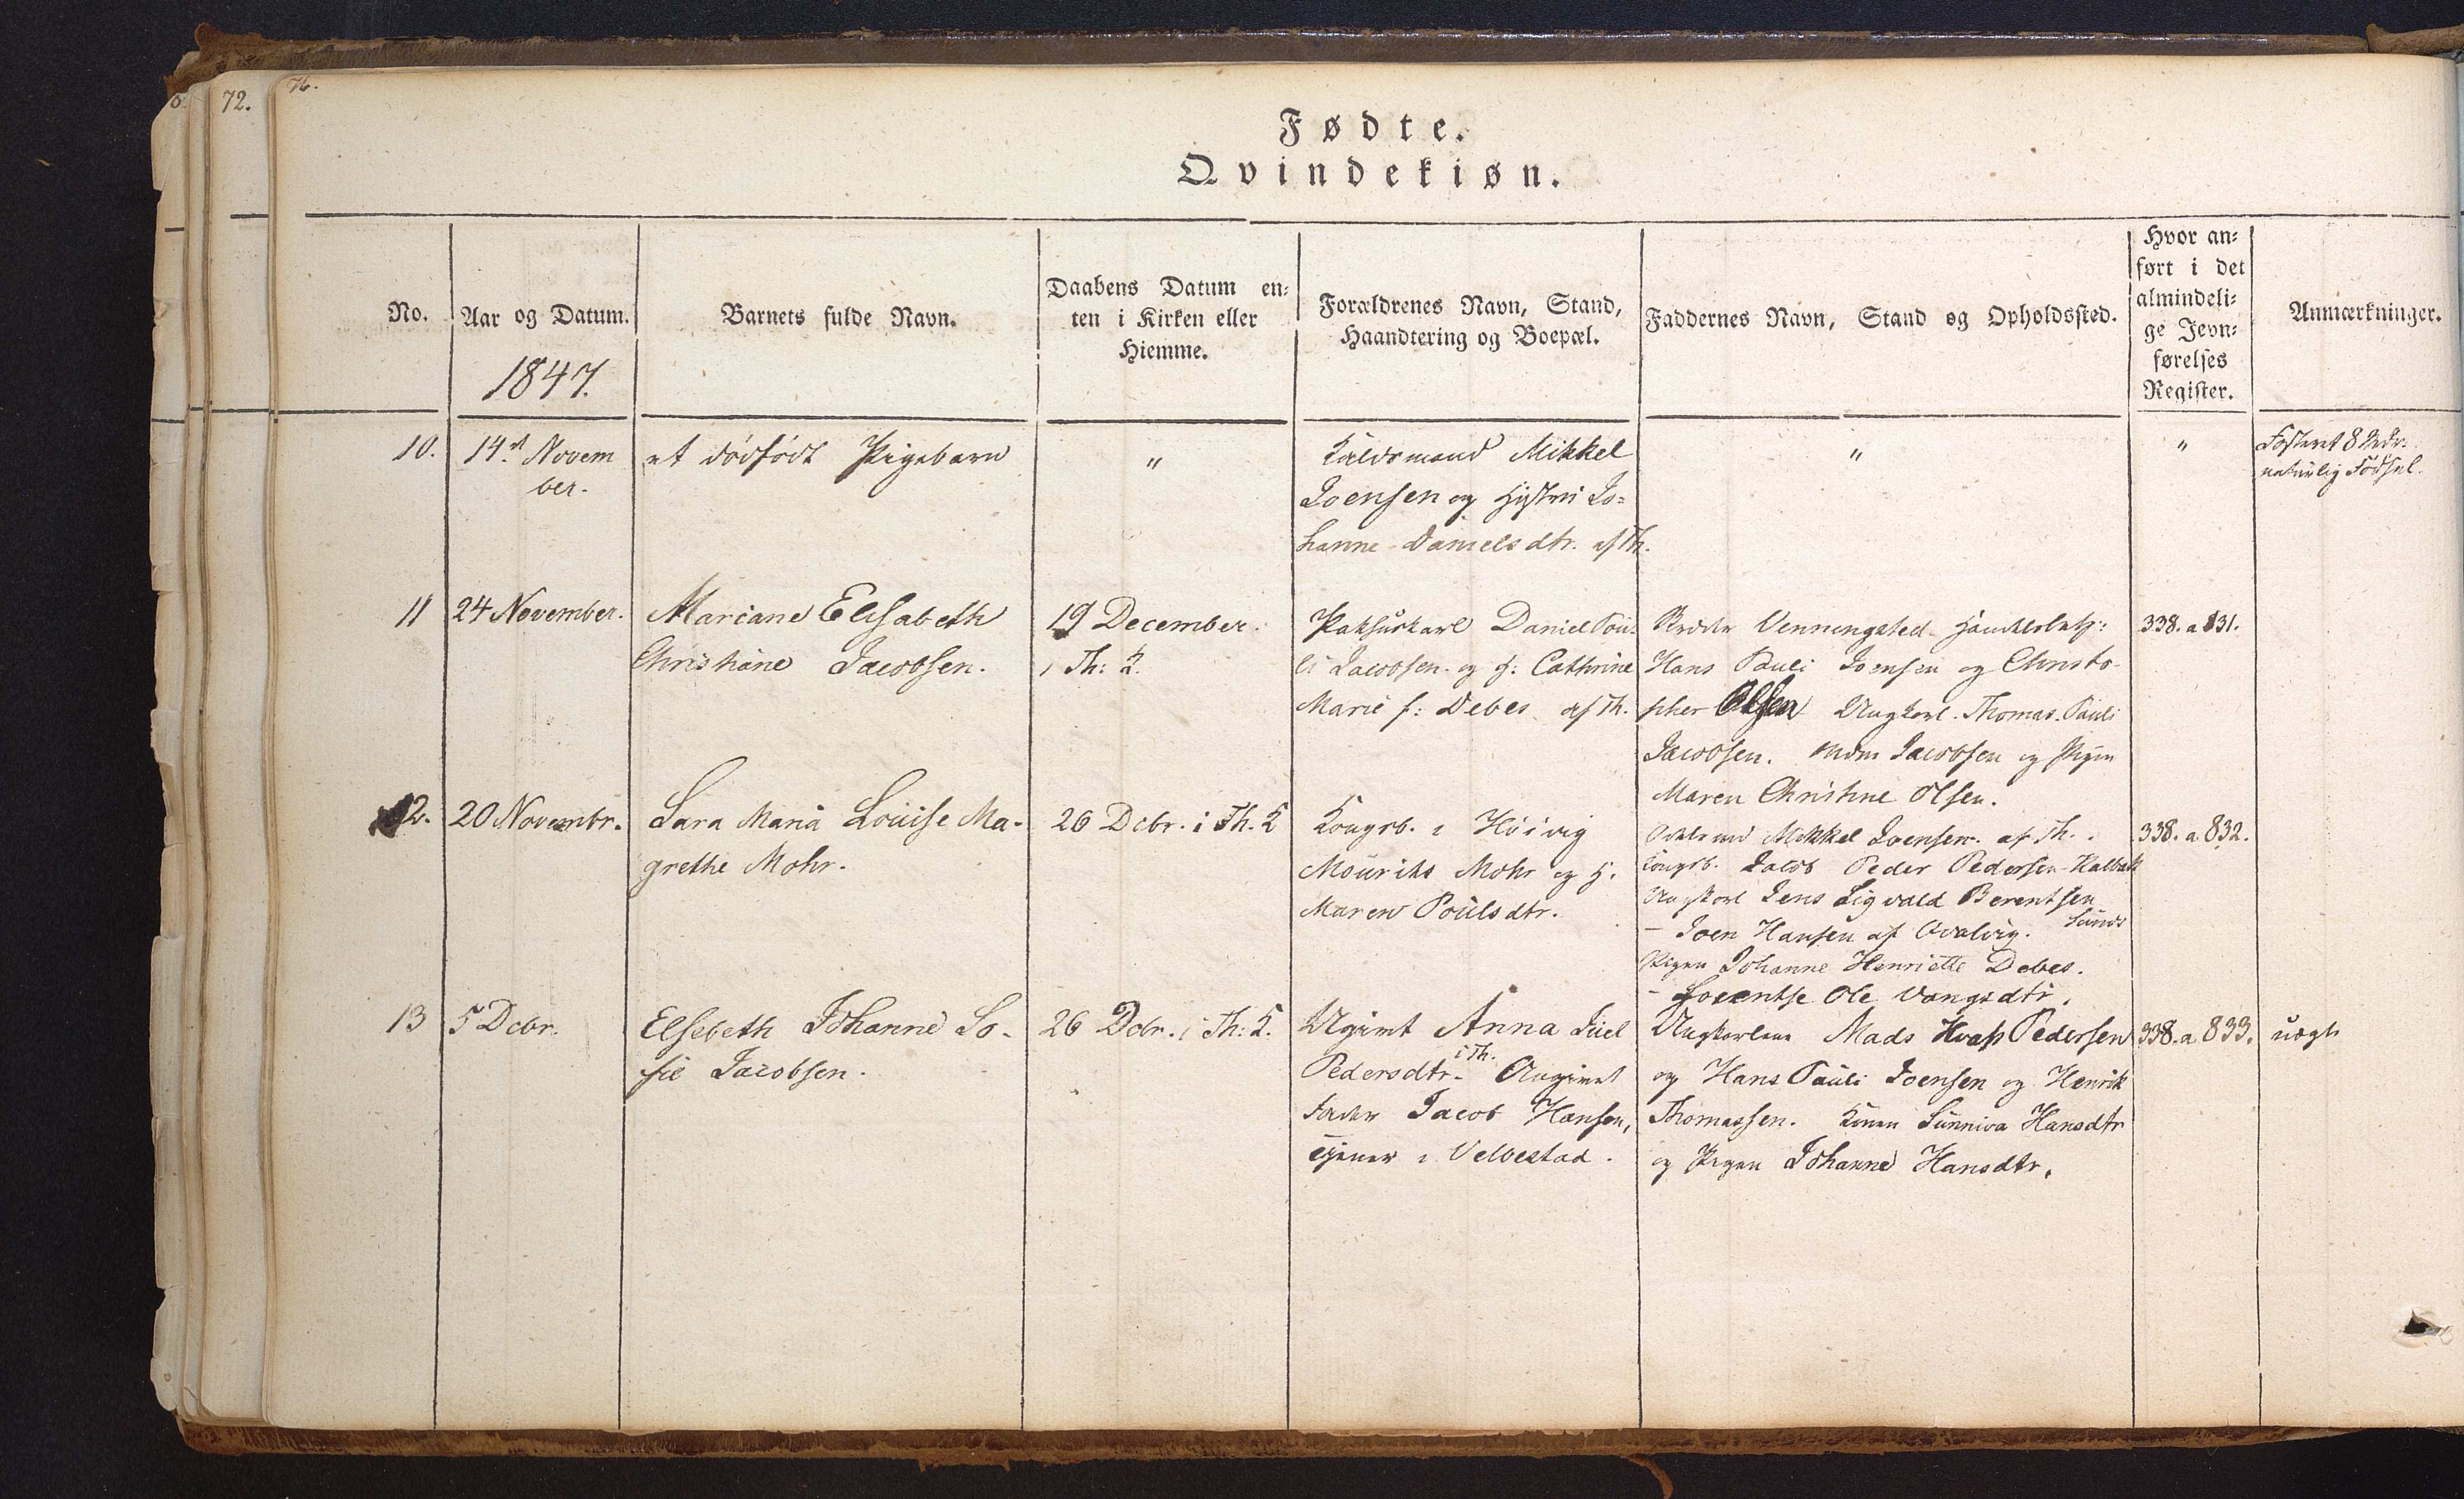 72.
76.
Fødte.
Qvindekiøn.
No.
Aar og Datum.
1847.
Barnets fulde Navn.
Daabens Datum en-
ten i Kirken eller
Hiemme.
Forældrenes Navn, Stand,
Haandtering og Boepæl.
Faddernes Navn, Stand og Opholdssted.
Hvor an-
ført i det
almindeli-
ge Jevn-
førelses
Register.
Anmærkninger.
10.
14de Novem
ber.
et dödfödt Pigebarn
"
Mikkel
Joensen og Hustru Jo-
hanne Danielsdtr. af Th.
"
"
Fosteret 8 Mdr.
naturlig Födsel.
11
24 November.
Mariane Elisabeth
Christiane Jacobsen.
19 December.
i Th: K.
Pakhuskarl Daniel Pou-
li Jacobsen og H: Cathrine
Marie f: Debes af Th.
Venningsted
Hans Pauli Joensen og Christo-
pher Olsen Ungkarl Thomas Pauli
Jacobsen. Mdm Jacobsen og Pigen
Maren Christine Olsen.
338. a 831.
12.
20 Novembr.
Sara Maria Louise Ma-
grethe Mohr.
26 Dcbr. i Th. K
Kongsb. i Höivig
Mouritz Mohr og H.
Maren Poulsdtr.
Mikkel Joensen af Th.
Kongsb. Jacob Peder Pedersen Kalbak
Ungkarl Jens Sigvald Berentsen
Sund
- Joen Hansen af Qvalvig.
Pigen Johanne Henriette Debes.
- Ole Vangsdtr.
338. a. 832.
13
5 Dcbr.
Elsebeth Johanne So-
fie Jacobsen.
26 Dcbr. i Th: K.
Ugivt Anna Juel
i Th.
Pedersdtr. Angivet
Fader Jacob Hansen,
tjener i Velbestad.
Ungkarlene Mads Hvass Pedersen
og Hans Pauli Joensen og Henrik
Thomassen. Konen Sunniva Hansdtr
og Pigen Johanne Hansdtr.
338. a 833.
uægte